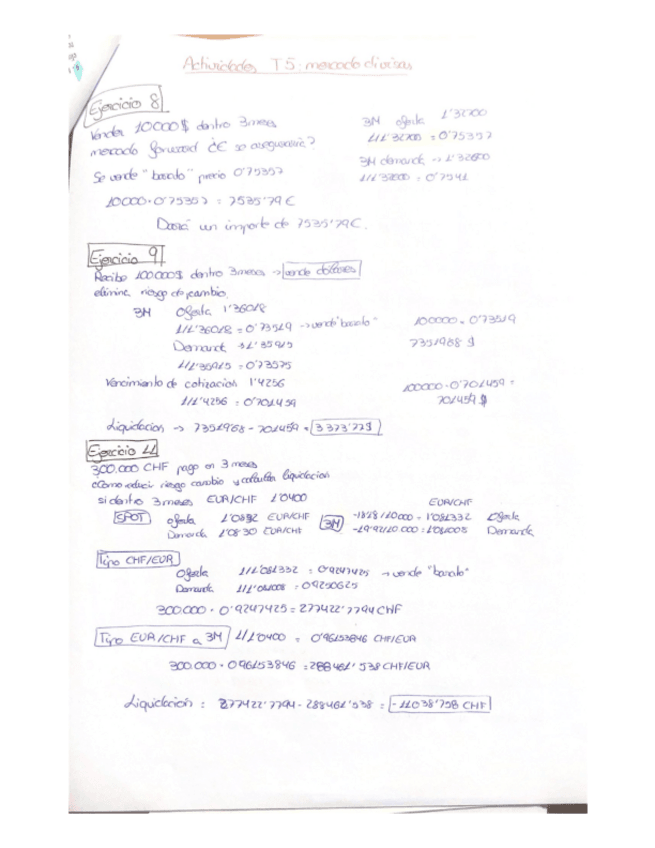 Actividades T5: mercado divisas
Ejercicio 8
Vender 10000$ dentro 3 meses
mercado forward ¿€ se asegurará?
Se vende "barato" precio 0'75357
10000 · 0'75357 = 7535'79 €
Dará un importe de 7535'79€.
3M oferta 1'32700
1/1'32700 = 0'75357
3M demanda → 1'32600
1/1'32600 = 0'7541
Ejercicio 9
Recibe 100000$ dentro 3 meses → vende dólares
elimine riesgo de cambio.
3M Oferta 1'36018
1/1'36018 = 0'73519 → vende "barato"
Demanda → 1'35915
1/1'35915 = 0'73575
Vencimiento de cotización 1'4256
1/1'4256 = 0'701459
100000 · 0'73519
73519'88 $
100000 · 0'701459 =
70145'9 $
Liquidación → 73519'88 - 70145'9 = 3373'77$
Ejercicio 11
300.000 CHF pago en 3 meses
cómo reducir riesgo cambio y calcular liquidación
si dentro 3 meses EUR/CHF 1'0400
SPOT Oferta 1'0832 EUR/CHF
Demanda 1'0830 EUR/CHF
3M
EUR/CHF
-18'68/10000 = 1'081332 Oferta
-19'92/10.000 = 1'081008 Demanda
Tipo CHF/EUR
Oferta 1/1'081332 = 0'9247425 → vende "barato"
Demanda 1/1'081008 = 0'9250625
300000 · 0'9247425 = 277422'7794 CHF
Tipo EUR/CHF a 3M 1/1'0400 = 0'96153846 CHF/EUR
300.000 · 0'96153846 = 288461'538 CHF/EUR
Liquidación : 277422'7794 - 288461'538 = -11038'758 CHF